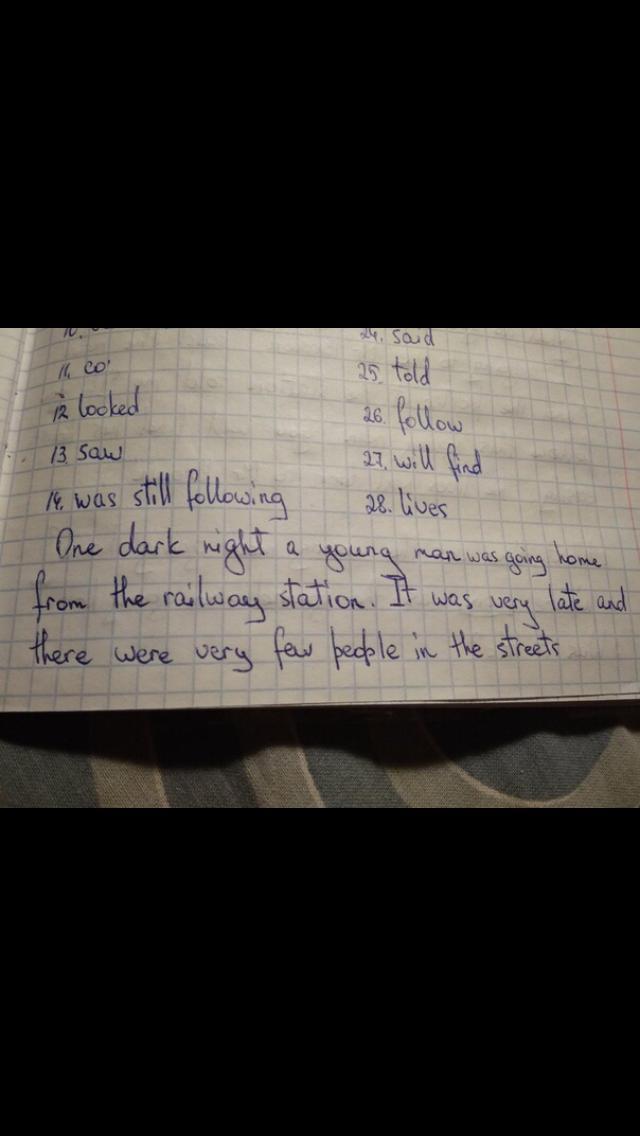 24. said
11. co
25. told
12 looked
26. follow
13. saw
27. will find
14. was still following
28. lives
One dark night a young man was going home
from the railway station. It was very late and
there were very few people in the streets